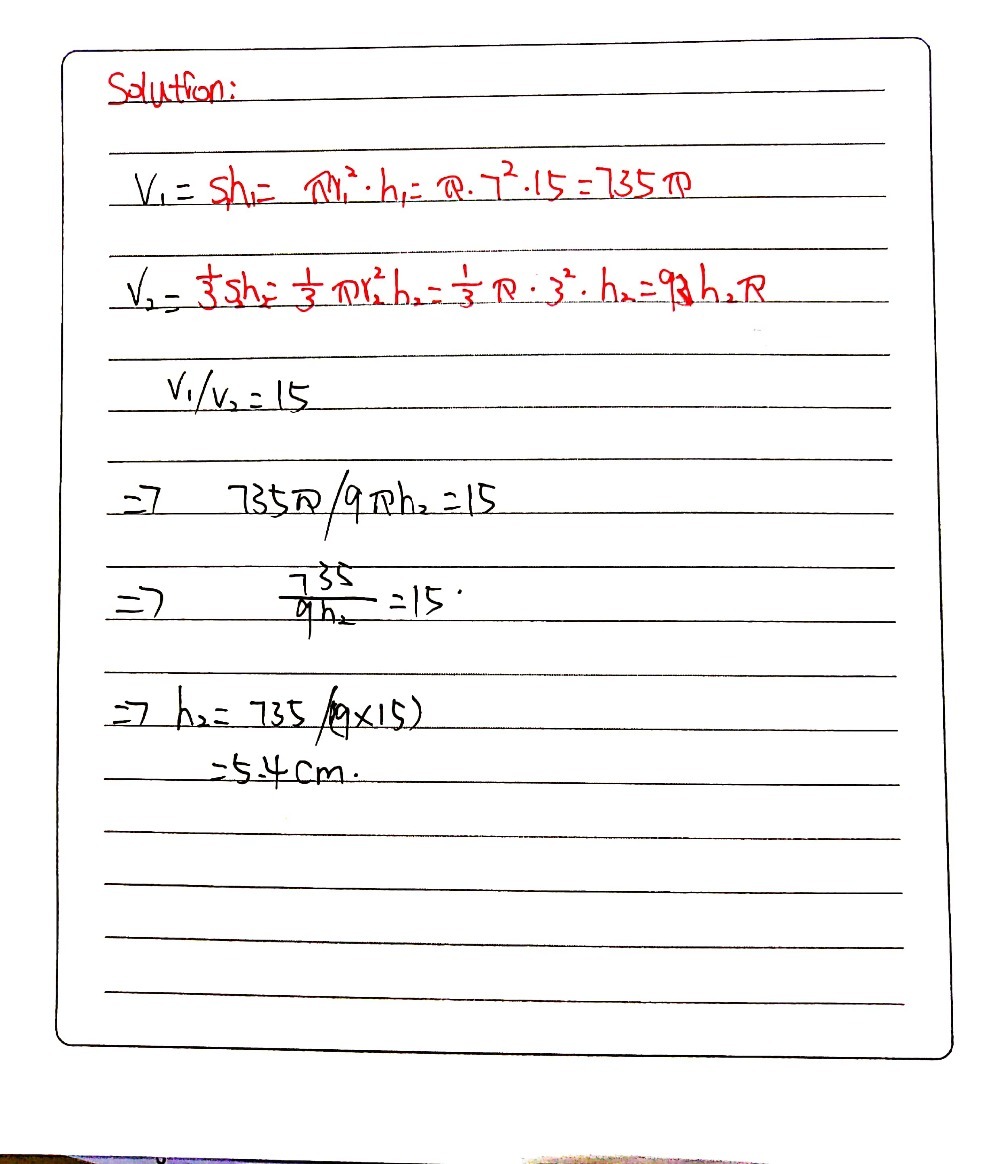 Solution:
V₁ = S₁h₁ = πr₁²·h₁ = π·7²·15 = 735π
V₂ = ⅓S₂h₂ = ⅓πr₂²h₂ = ⅓π·3²·h₂ = 9h₂π
V₁/V₂ = 15
=> 735π/9πh₂ = 15
=> 735/9h₂ = 15
=> h₂ = 735/(9×15)
= 5.4 cm.